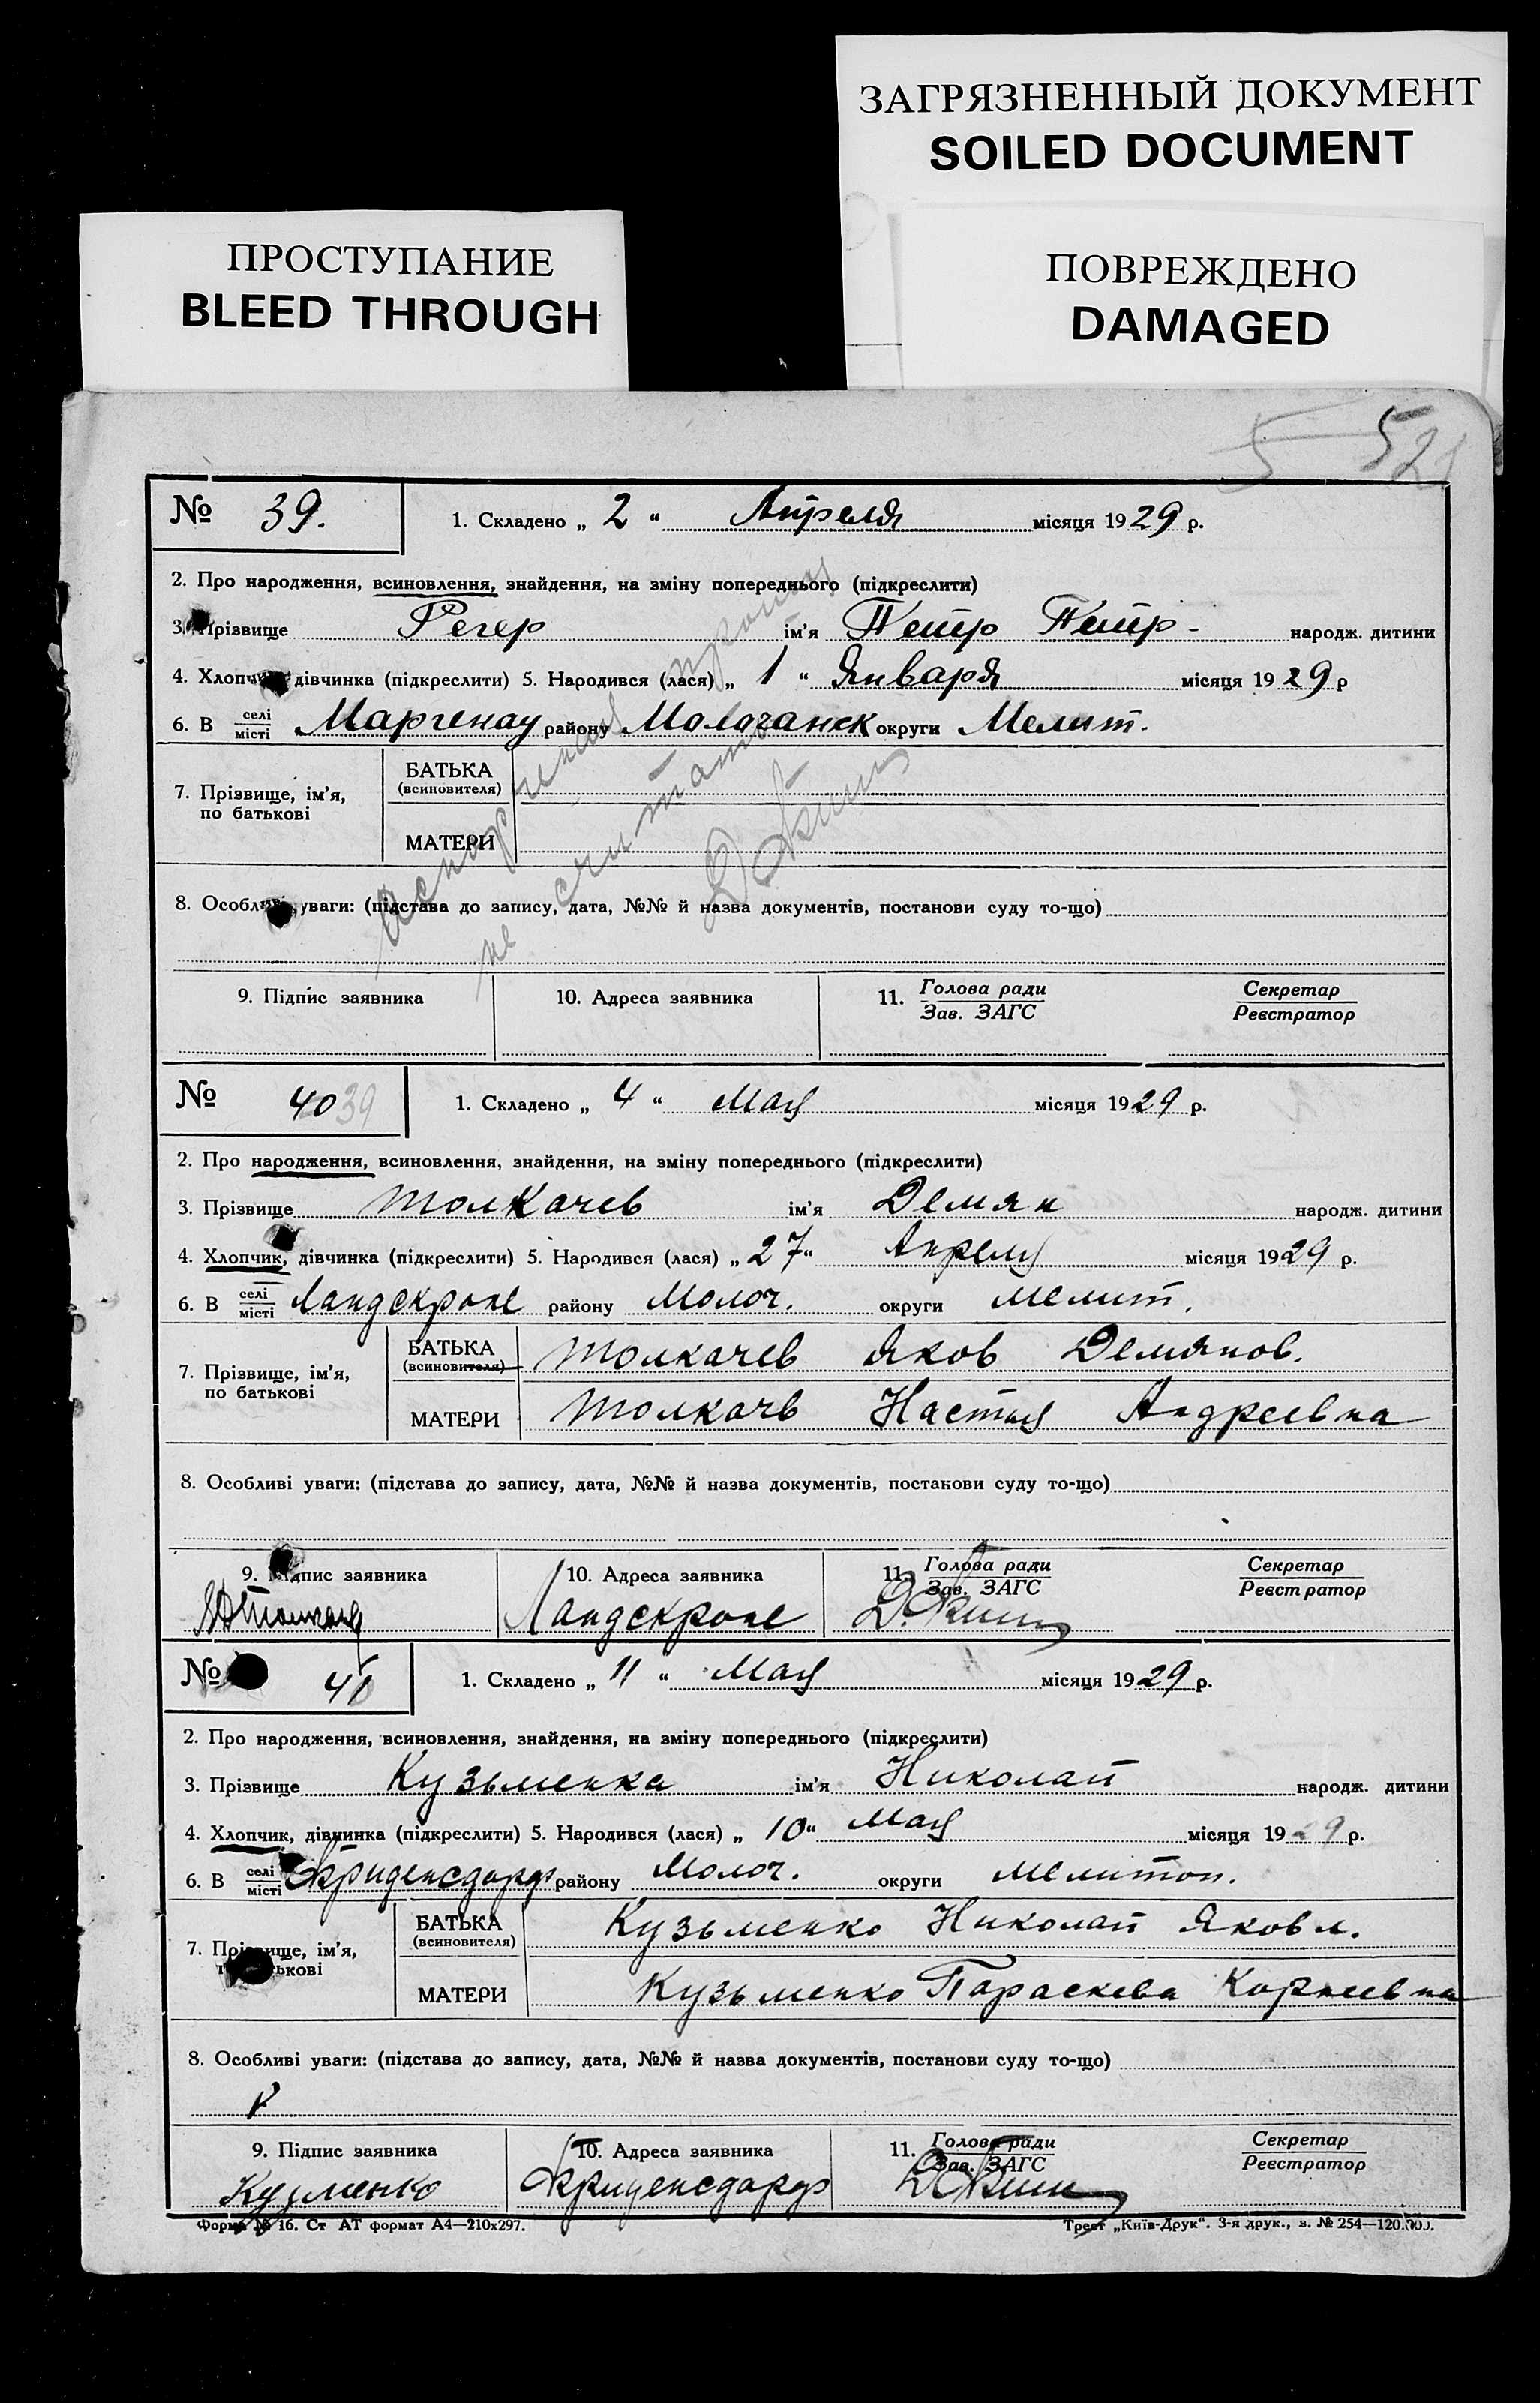 ЗАГРЯЗНЕННЫЙ ДОКУМЕНТ
SOILED DOCUMENT
ПРОСТУПАНИЕ
BLEED THROUGH
ПОВРЕЖДЕНО
DAMAGED
5 521
№ 39. 1. Складено „ 2 “ Апреля місяця 1929 р.
2. Про народження, всиновлення, знайдення, на зміну попереднього (підкреслити)
3. Прізвище Регер ім'я Петр Петр- народж. дитини
4. Хлопчик, дівчинка (підкреслити) 5. Народився (лася) „ 1 “ Января місяця 1929 р
6. В селі/місті Маргенау району Молочанск округи Мелит.
7. Прізвище, ім'я, по батькові
БАТЬКА (всиновителя)
МАТЕРИ
8. Особливі уваги: (підстава до запису, дата, №№ й назва документів, постанови суду то-що)
не считать
9. Підпис заявника 10. Адреса заявника 11. Голова ради/Зав. ЗАГС Секретар/Реєстратор
№ 40 39 1. Складено „ 4 “ Мая місяця 1929 р.
2. Про народження, всиновлення, знайдення, на зміну попереднього (підкреслити)
3. Прізвище Толкачев ім'я Демян народж. дитини
4. Хлопчик, дівчинка (підкреслити) 5. Народився (лася) „ 27 “ Апреля місяця 1929 р.
6. В селі/місті Ландскроне району Молоч. округи Мелит.
7. Прізвище, ім'я, по батькові
БАТЬКА (всиновителя) Толкачев Яков Демянов.
МАТЕРИ Толкачв Настья Андреевна
8. Особливі уваги: (підстава до запису, дата, №№ й назва документів, постанови суду то-що)
9. Підпис заявника 10. Адреса заявника 11. Голова ради/Зав. ЗАГС Секретар/Реєстратор
Ландскроне
№ 41 1. Складено „ 11 “ Мая місяця 1929 р.
2. Про народження, всиновлення, знайдення, на зміну попереднього (підкреслити)
3. Прізвище Кузьменка ім'я Николай народж. дитини
4. Хлопчик, дівчинка (підкреслити) 5. Народився (лася) „ 10 “ Мая місяця 1929 р.
6. В селі/місті Фриденсдорф району Молоч. округи Мелитоп.
7. Прізвище, ім'я, по батькові
БАТЬКА (всиновителя) Кузьменко Николай Яковл.
МАТЕРИ Кузьменко Параскева Корнеевна
8. Особливі уваги: (підстава до запису, дата, №№ й назва документів, постанови суду то-що)
9. Підпис заявника 10. Адреса заявника 11. Голова ради/Зав. ЗАГС Секретар/Реєстратор
Кузменко Фриденсдорф
Форма № 16. Ст АТ формат А4—210х297. Трест „Київ-Друк“. 3-я друк., з. № 254—120.000.